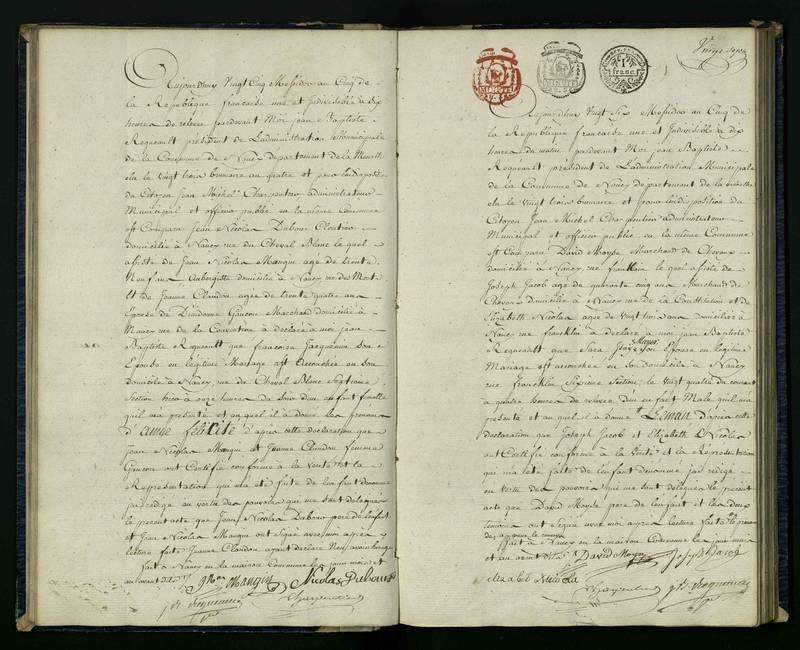 Aujourdhuy Vingt Cinq Messidor an Cinq de
la Republique francaise une et Indivisible a dix
heures de relevée pardevant Moi jean Baptiste
président de L'administration Municipale
de la Commune de departement de la Meurthe
elu le Vingt trois brumaire an quatre et pour lindisposition
du Citoyen Jean Michel Charpentier administrateur
Municipal et officier public en la même Commune
est Comparu Jean Nicolas Dubour Cloutier
domicilié à Nancy rue du Cheval Blanc le quel
assisté de Jean Nicolas Mangin agé de trente
Neuf ans Aubergiste domicilié à Nancy rue des
et de Jeanne Claudon agée de trente quatre ans
Epouse de Marchand domicilié à
Nancy rue de la Convention à déclaré à moi jean
Baptiste que francoise Jacquemin son
Epouse en légitime Mariage est accouchée en son
domicile à Nancy rue du Cheval Blanc Septieme
Section hier à onze heures du Soir d'un enfant femelle
quil ma présenté et au quel il à donné les prenoms
d'anne felicité d'apres cette declaration que
Jean Nicolas Mangin et Jeanne Claudon femme
ont Certifié conforme à la Verité et la
Representation qui m'a été faite de lenfant dénommé
jai redigé en vertu des pouvoirs qui me sont delegués
le present acte que Jean Nicolas Dubour pere de lenfant
et Jean Nicolas Mangin ont Signé avec moi apres
lecture faite Jeanne Claudon ayant declaré
fait à Nancy en la maison Commune les jour mois et
an avant dits
Mangin Nicolas Dubour
Charpentier
franc.
Aujourdhuy Vingt Six Messidor an Cinq de
la République francaise une et Indivisible à dix
heures du matin pardevant Moi jean Baptiste
président de L'administration Municipale
de la Commune de Nancy departement de la Meurthe
elu le Vingt trois brumaire et pour lindisposition du
Citoyen Jean Michel Charpentier administrateur
Municipal et officier public en la même Commune
est Comparu David Moyse Marchand de Chevaux
domicilié à Nancy rue franklin le quel assisté de
Joseph Jacob agé de quarante cinq ans Marchand de
Chevaux domicilié à Nancy rue de la Constitution et de
Elizabeth Nicolas agée de Vingt ans domiciliée à
Nancy rue francklin à déclaré à moi jean Baptiste
que Sara Mayer Son Epouse en legitime
Mariage est accouchée en son domicile à Nancy
rue francklin Sixieme Section le Vingt quatre du courant
à quatre heures de relevée d'un enfant Male quil m'a
présenté et au quel il a donné Léman d'après cette
declaration que Joseph Jacob et Elizabeth Nicolas
ont Certifié conforme à la Verité et la Représentation
qui m'a été faite de lenfant dénommé jai redigé
en vertu des pouvoirs qui me sont delegués le present
acte que David Moyse pere de lenfant et les deux
témoins ont signé avec moi apres lecture faite
fait à Nancy en la maison Commune les jour mois
et an avant dits David Moyse Joseph Jacob
elizabet Nicola
Charpentier